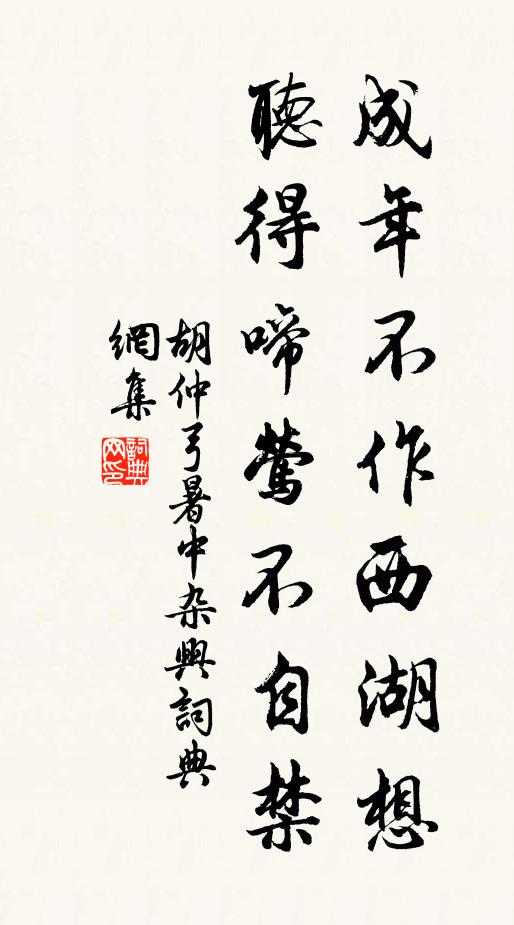 成年不作西湖想
聽得啼鶯不自禁
胡仲弓暑中杂興詞典
網集
詞典网印